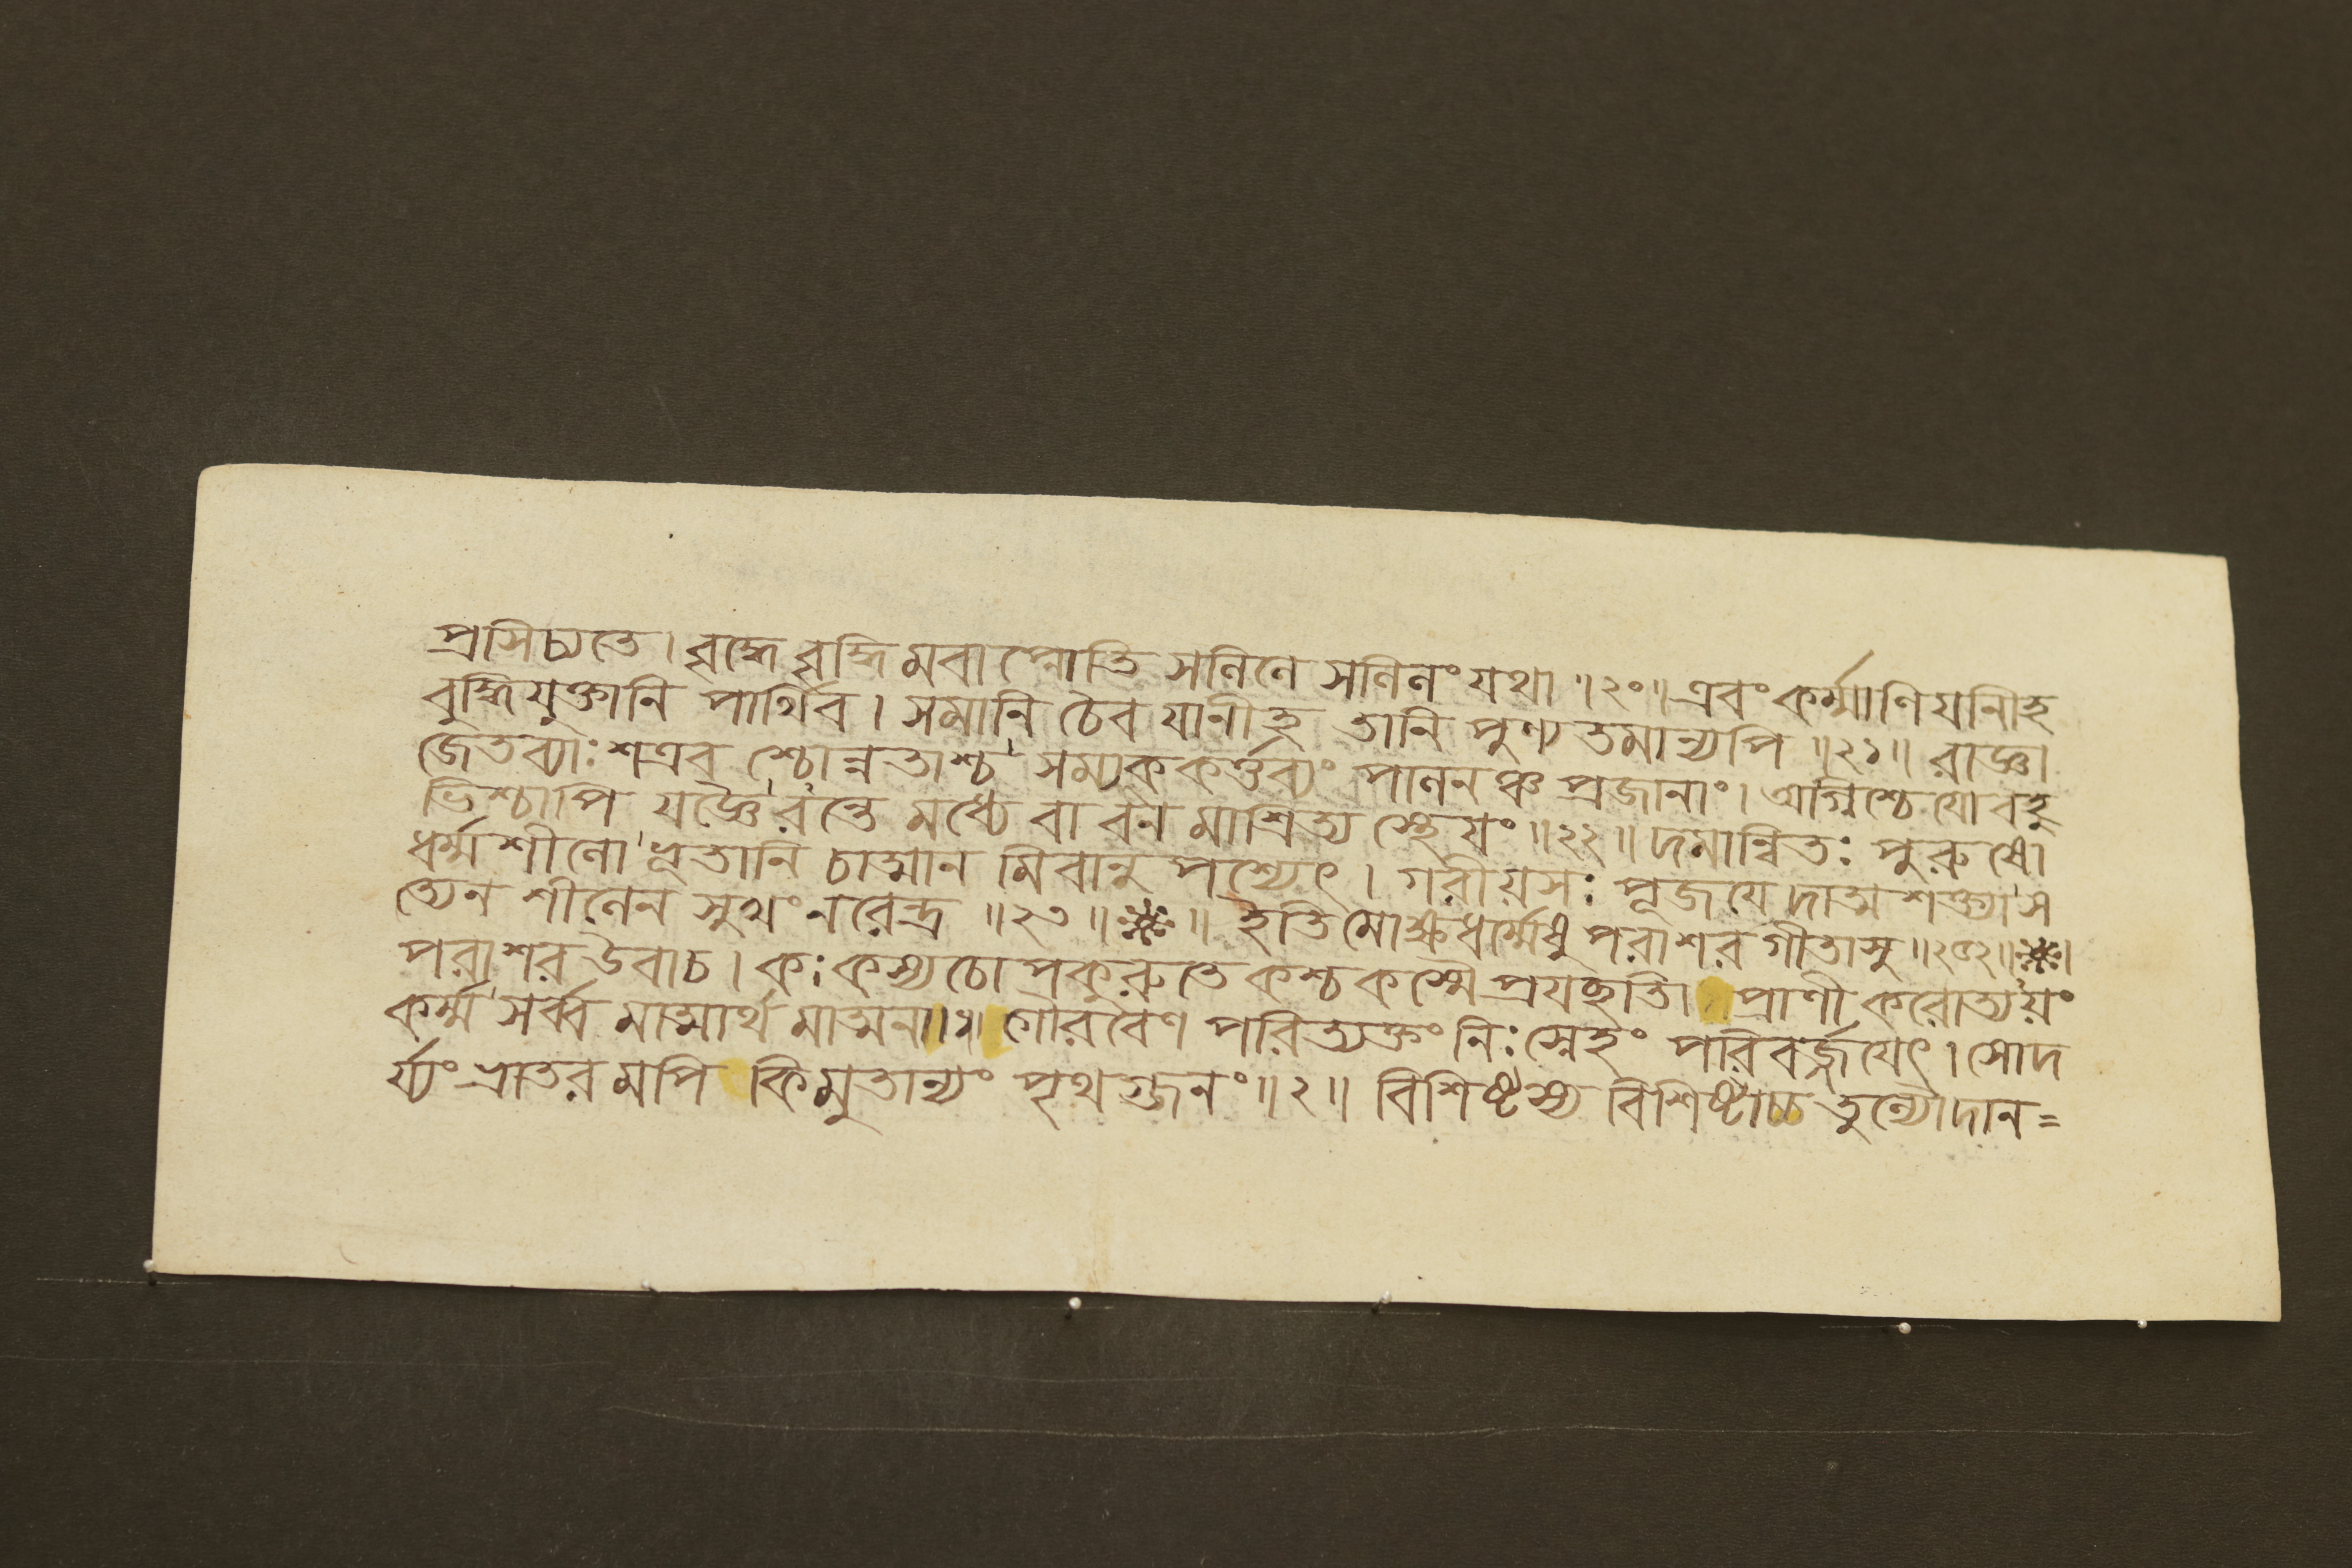 প্রসিচ্যতে। বৃদ্ধে বৃদ্ধিমবাপ্নোতি সলিলে সলিলং যথা ॥২০॥ এবং কর্ম্মাণি যানীহ
বুদ্ধিযুক্তানি পার্থিব। সমানি চৈব যানীহ তানি পুণ্যতমান্যপি ॥২১॥ রাজ্ঞা
জেতব্যাঃ শত্রবশ্চোন্নতাশ্চ সম্যক কর্ত্তব্যং পালনঞ্চ প্রজানাং। অগ্নিশ্চেয়ো বহু
ভিশ্চাপি যজ্ঞৈরন্তে মধ্যে বা বনমাশ্রিত্য স্থেয়ং ॥২২॥ দমান্বিতঃ পুরুষো
ধর্ম্মশীলো ভূতানি চাত্মানমিবানুপশ্যেৎ। গরীয়সঃ পূজয়েদাত্মশক্ত্যা স
ত্যেন শীলেন সুখং নরেন্দ্র ॥২৩॥ ❈ ॥ ইতি মোক্ষধর্ম্মেষু পরাশরগীতাসু ॥২৯২॥ ❈ ।
পরাশর উবাচ। কঃ কস্য চোপকুরুতে কশ্চ কস্মৈ প্রযচ্ছতি। প্রাণী করোত্যয়ং
কর্ম্ম সর্ব্বমাত্মার্থমাত্মনা ॥১॥ গৌরবেণ পরিত্যক্তং নিঃস্নেহং পরিবর্জ্জয়েৎ। সোদ
র্য্যং ভ্রাতরমপি কিমুতান্যং পৃথগ্জনং ॥২॥ বিশিষ্টস্য বিশিষ্টাচ্চ তুল্যৌ দান=